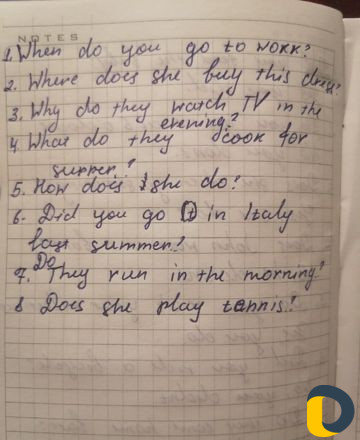 NOTES
1. When do you go to work?
2. Where does she buy this dress?
3. Why do they watch TV in the
evening?
4. What do they cook for
summer?
5. How does she do?
6. Did you go in Italy
last summer?
Do
7. They run in the morning?
8 Does she play tennis?